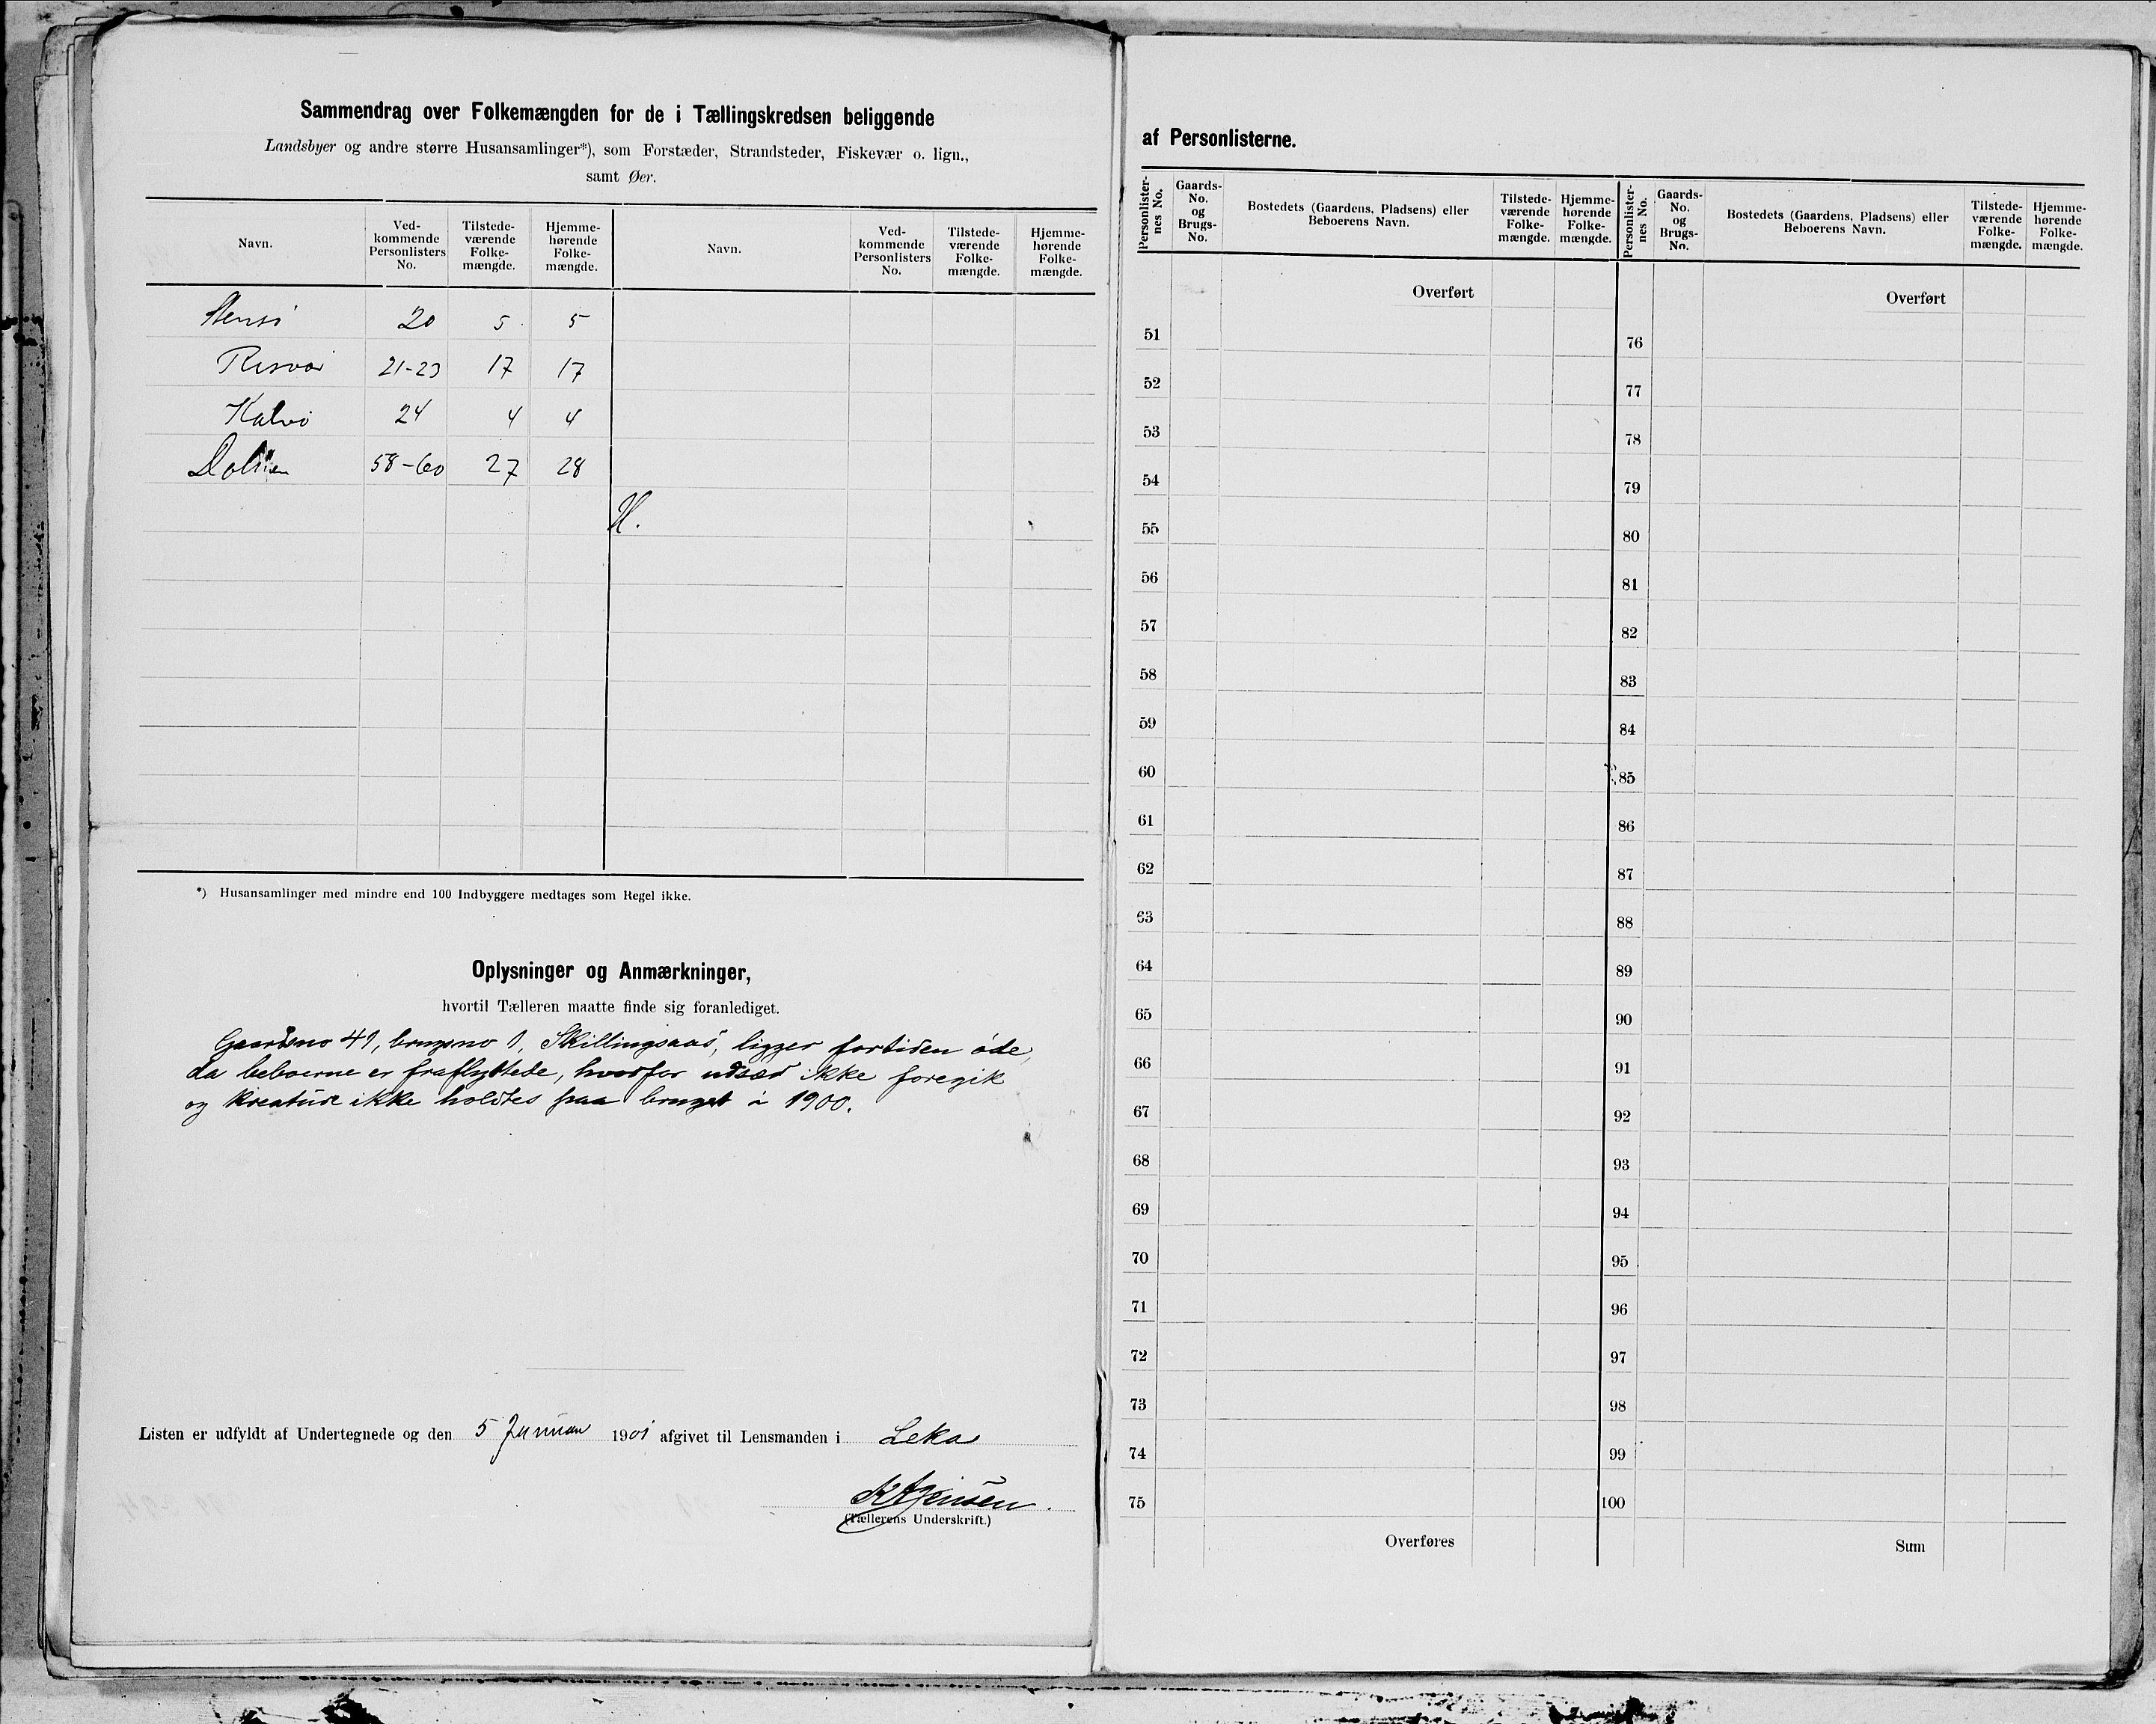 Sammendrag over Folkemængden for de i Tællingskredsen beliggende
Landsbyer og andre større Husansamlinger*), som Forstæder, Strandsteder, Fiskevær o. lign.,
samt Øer.
Navn. Ved-kommende Personlisters No. Tilstede-værende Folke-mængde. Hjemme-hørende Folke-mængde. Navn. Ved-kommende Personlisters No. Tilstede-værende Folke-mængde. Hjemme-hørende Folke-mængde.
20 5 5
Risvær 21-23 17 17
Kalvø 24 4 4
58-60 27 28
*) Husansamlinger med mindre end 100 Indbyggere medtages som Regel ikke.
Oplysninger og Anmærkninger,
hvortil Tælleren maatte finde sig foranlediget.
Gaardsno 41, brugsno 1, Skillingsaas, ligger fortiden øde,
da beboerne er fraflyttede, hvorfor udsæd ikke foregik
og kreature ikke holdtes paa bruget i 1900.
Listen er udfyldt af Undertegnede og den 5 Januar 1901 afgivet til Lensmanden i Leka
K A Jensen.
(Tællerens Underskrift.)
af Personlisterne.
Personlister-nes No. Gaards-No. og Brugs-No. Bostedets (Gaardens, Pladsens) eller Beboerens Navn. Tilstede-værende Folke-mængde. Hjemme-hørende Folke-mængde. Personlister-nes No. Gaards-No. og Brugs-No. Bostedets (Gaardens, Pladsens) eller Beboerens Navn. Tilstede-værende Folke-mængde. Hjemme-hørende Folke-mængde.
Overført Overført
51 76
52 77
53 78
54 79
55 80
56 81
57 82
58 83
59 84
60 85
61 86
62 87
63 88
64 89
65 90
66 91
67 92
68 93
69 94
70 95
71 96
72 97
73 98
74 99
75 100
Overføres Sum